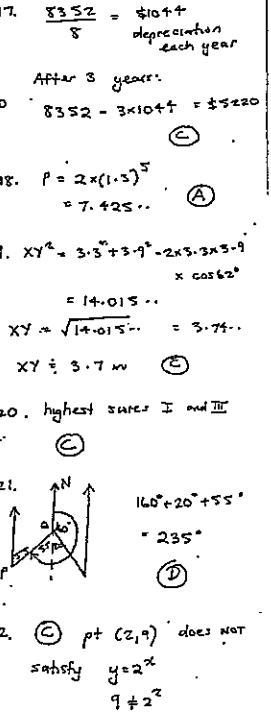 17. 8352/8 = $1044
depreciation
each year
After 3 years:
8352 - 3×1044 = $5220
(C)
18. P = 2×(1.3)^5
= 7.425..
(A)
XY² = 3.3² + 3.9² - 2×3.3×3.9
× cos 62°
= 14.015..
XY = √14.015.. = 3.74..
XY ≑ 3.7 m (C)
20. highest sures I and III
(C)
21.
N
160°
55°
P
160° + 20° + 55°
= 235°
(D)
2. (C) pt (2,9) does NOT
satisfy y = 2^x
9 ≠ 2²